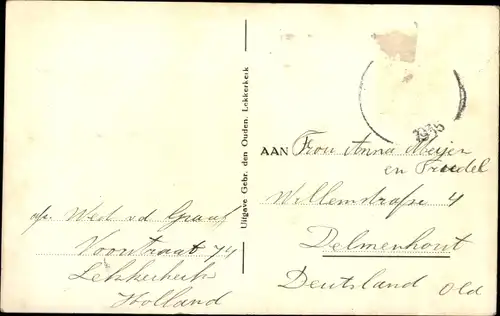 Uitgave Gebr. den Ouden, Lekkerkerk
1935
AAN Frou Anna Meijer
en Friedel
Willemstrafse 4
Delmenhout
Deutsland Old
afz. Wed v d Graaf
Voorstraat 74
Lekkerkerk
Holland